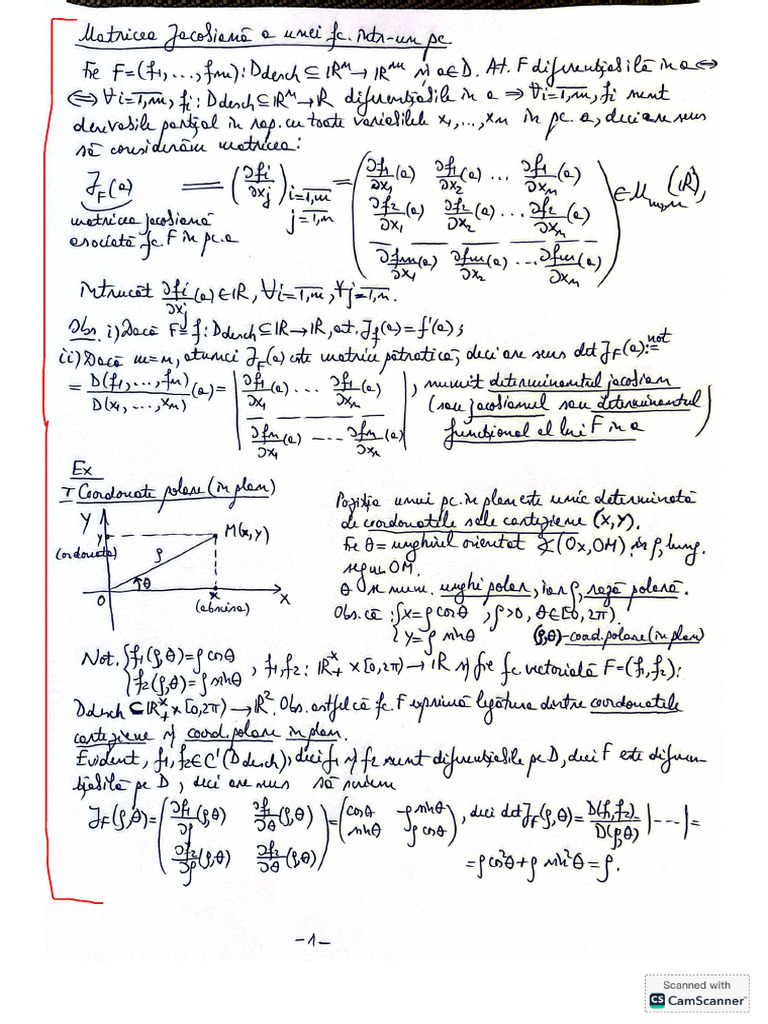 Matricea Jacobiană a unei fc. într-un pc.
Fie F=(f₁,...,fₘ): D desch ⊆ ℝⁿ → ℝᵐ și a∈D. At. F diferențiabilă în a ⟺
⟺ ∀i=1,m, fᵢ: D desch ⊆ ℝⁿ → ℝ diferențiabile în a ⇒ ∀i=1,m, fᵢ sunt
derivabile parțial în rap. cu toate variabilele x₁,...,xₙ în pc. a, deci are sens
să considerăm matricea:
J_F(a) = (∂fᵢ/∂xⱼ) i=1,m j=1,n = (∂f₁/∂x₁(a) ∂f₁/∂x₂(a) ... ∂f₁/∂xₙ(a)
∂f₂/∂x₁(a) ∂f₂/∂x₂(a) ... ∂f₂/∂xₙ(a)
∂fₘ/∂x₁(a) ∂fₘ/∂x₂(a) ... ∂fₘ/∂xₙ(a)) ∈ M_{m,n}(ℝ),
matricea jacobiană
asociată fc. F în pc. a
întrucât ∂fᵢ/∂xⱼ(a) ∈ ℝ, ∀i=1,m, ∀j=1,n.
Obs. i) Dacă F=f: D desch ⊆ ℝ → ℝ, at. J_f(a)=f'(a);
ii) Dacă m=n, atunci J_F(a) este matrice pătratică, deci are sens det J_F(a) :=not
= D(f₁,...,fₙ)/D(x₁,...,xₙ)(a) = |∂f₁/∂x₁(a) ... ∂f₁/∂xₙ(a)
∂fₙ/∂x₁(a) --- ∂fₙ/∂xₙ(a)|, numit determinantul jacobian
(sau jacobianul sau determinantul
funcțional al lui F în a)
Ex
I Coordonate polare (în plan)
Y
y
(ordonata)
M(x,y)
ρ
θ
O
x
X
(abscisa)
Poziția unui pc. în plan este unic determinată
de coordonatele sale carteziene (x,y).
Fie θ = unghiul orientat ∢(Ox,OM) și ρ, lung.
segm OM.
θ se num. unghi polar, iar ρ, rază polară.
Obs. că: {x=ρ cosθ, ρ>0, θ∈[0,2π).
{y=ρ sinθ (ρ,θ)-coord. polare (în plan)
Not. {f₁(ρ,θ)=ρ cosθ
{f₂(ρ,θ)=ρ sinθ, f₁,f₂: ℝ₊* × [0,2π) → ℝ și fie fc. vectorială F=(f₁,f₂):
D desch ⊆ ℝ₊* × [0,2π) → ℝ². Obs. astfel că fc. F exprimă legătura dintre coordonatele
carteziene și coord. polare în plan.
Evident, f₁,f₂∈C¹(D desch), deci f₁ și f₂ sunt diferențiabile pe D, deci F este diferen-
țiabilă pe D, deci are sens să scriem
J_F(ρ,θ) = (∂f₁/∂ρ(ρ,θ) ∂f₁/∂θ(ρ,θ)
∂f₂/∂ρ(ρ,θ) ∂f₂/∂θ(ρ,θ)) = (cosθ -ρ sinθ
sinθ ρ cosθ), deci det J_F(ρ,θ) = D(f₁,f₂)/D(ρ,θ) = |---| =
= ρ cos²θ + ρ sin²θ = ρ.
-1-
Scanned with
CS CamScanner